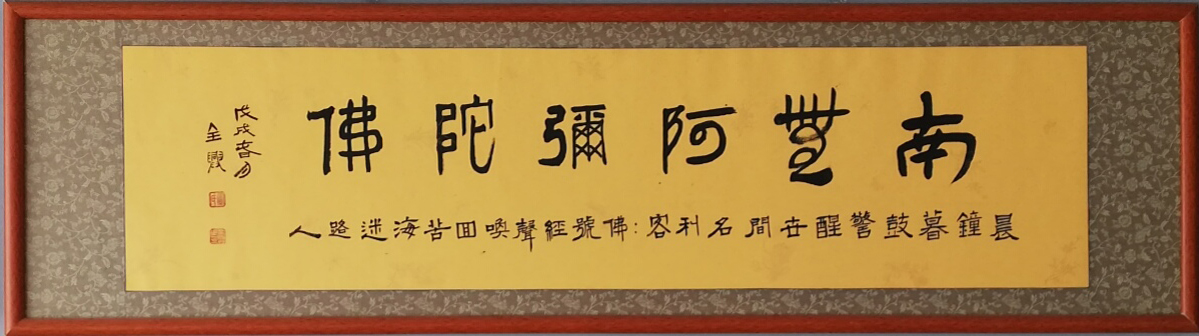 南無阿彌陀佛
晨鐘暮鼓警醒世間名利客:佛號經聲喚回苦海迷路人
戊戌春月
全興